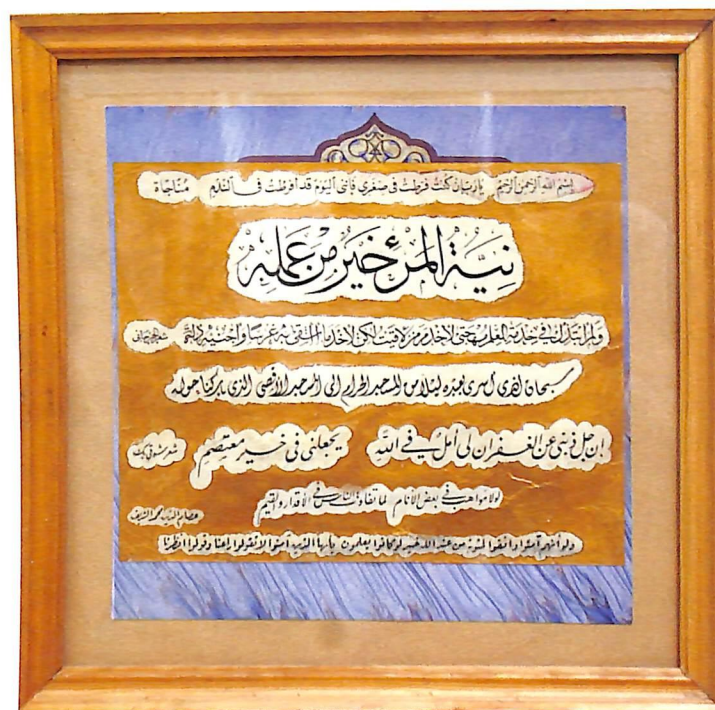 بسم الله الرحمن الرحيم يا رب إن كنت فرطت في صغري فإنني اليوم قد أفرطت في الندم مناجاة
نية المرئ خير من عمله
ولم أبتذل في خدمة العلم مهجتي لأخدم من لاقيت لكن لأخدما أأشقى به غرسا وأجنيه ذلة
سبحان الذي أسرى بعبده ليلا من المسجد الحرام إلى المسجد الأقصى الذي باركنا حوله
إن جل ذنبي عن الغفران لي أمل في الله يجعلني في خير معتصم شعر شوقي بك
لولا مواهب في بعض الأنام لما تفاوت الناس في الأقدار والقيم
ولو أنهم آمنوا واتقوا لمثوبة من عند الله خير لو كانوا يعلمون يا أيها الذين آمنوا لا تقولوا راعنا وقولوا انظرنا